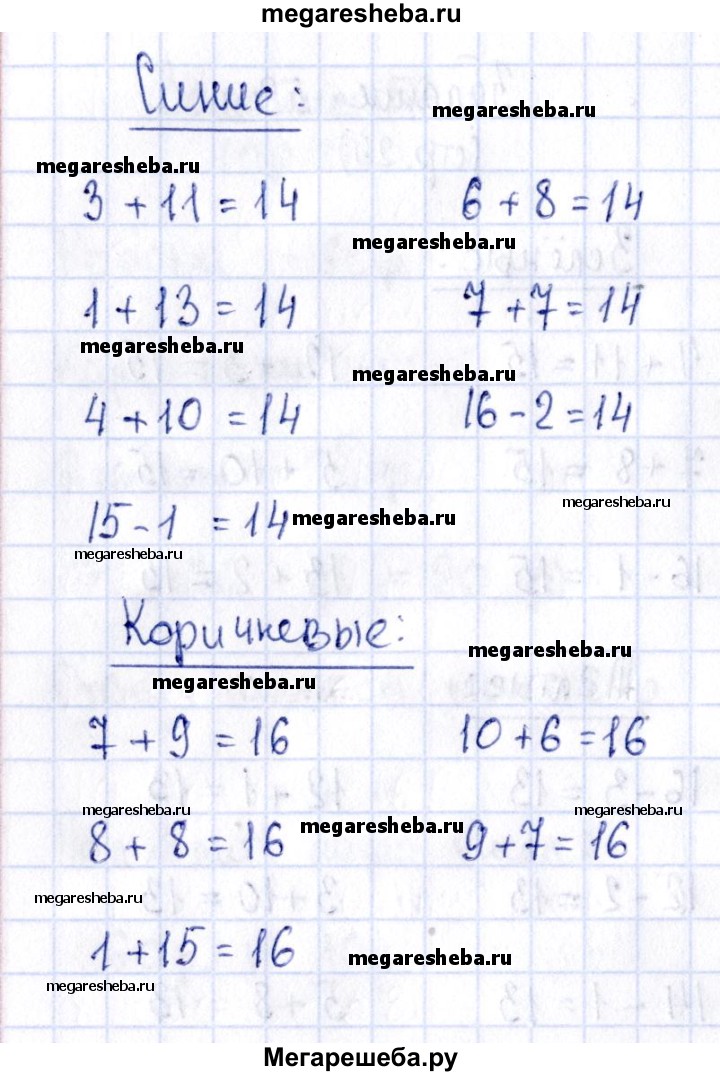 megaresheba.ru
Синие:
megaresheba.ru
megaresheba.ru
3 + 11 = 14 6 + 8 = 14
megaresheba.ru
1 + 13 = 14 7 + 7 = 14
megaresheba.ru
megaresheba.ru
4 + 10 = 14 16 - 2 = 14
megaresheba.ru
15 - 1 = 14 megaresheba.ru
megaresheba.ru
Коричневые:
megaresheba.ru
megaresheba.ru
7 + 9 = 16 10 + 6 = 16
megaresheba.ru megaresheba.ru
8 + 8 = 16 megaresheba.ru 9 + 7 = 16
megaresheba.ru
1 + 15 = 16 megaresheba.ru
megaresheba.ru
Мегарешеба.ру